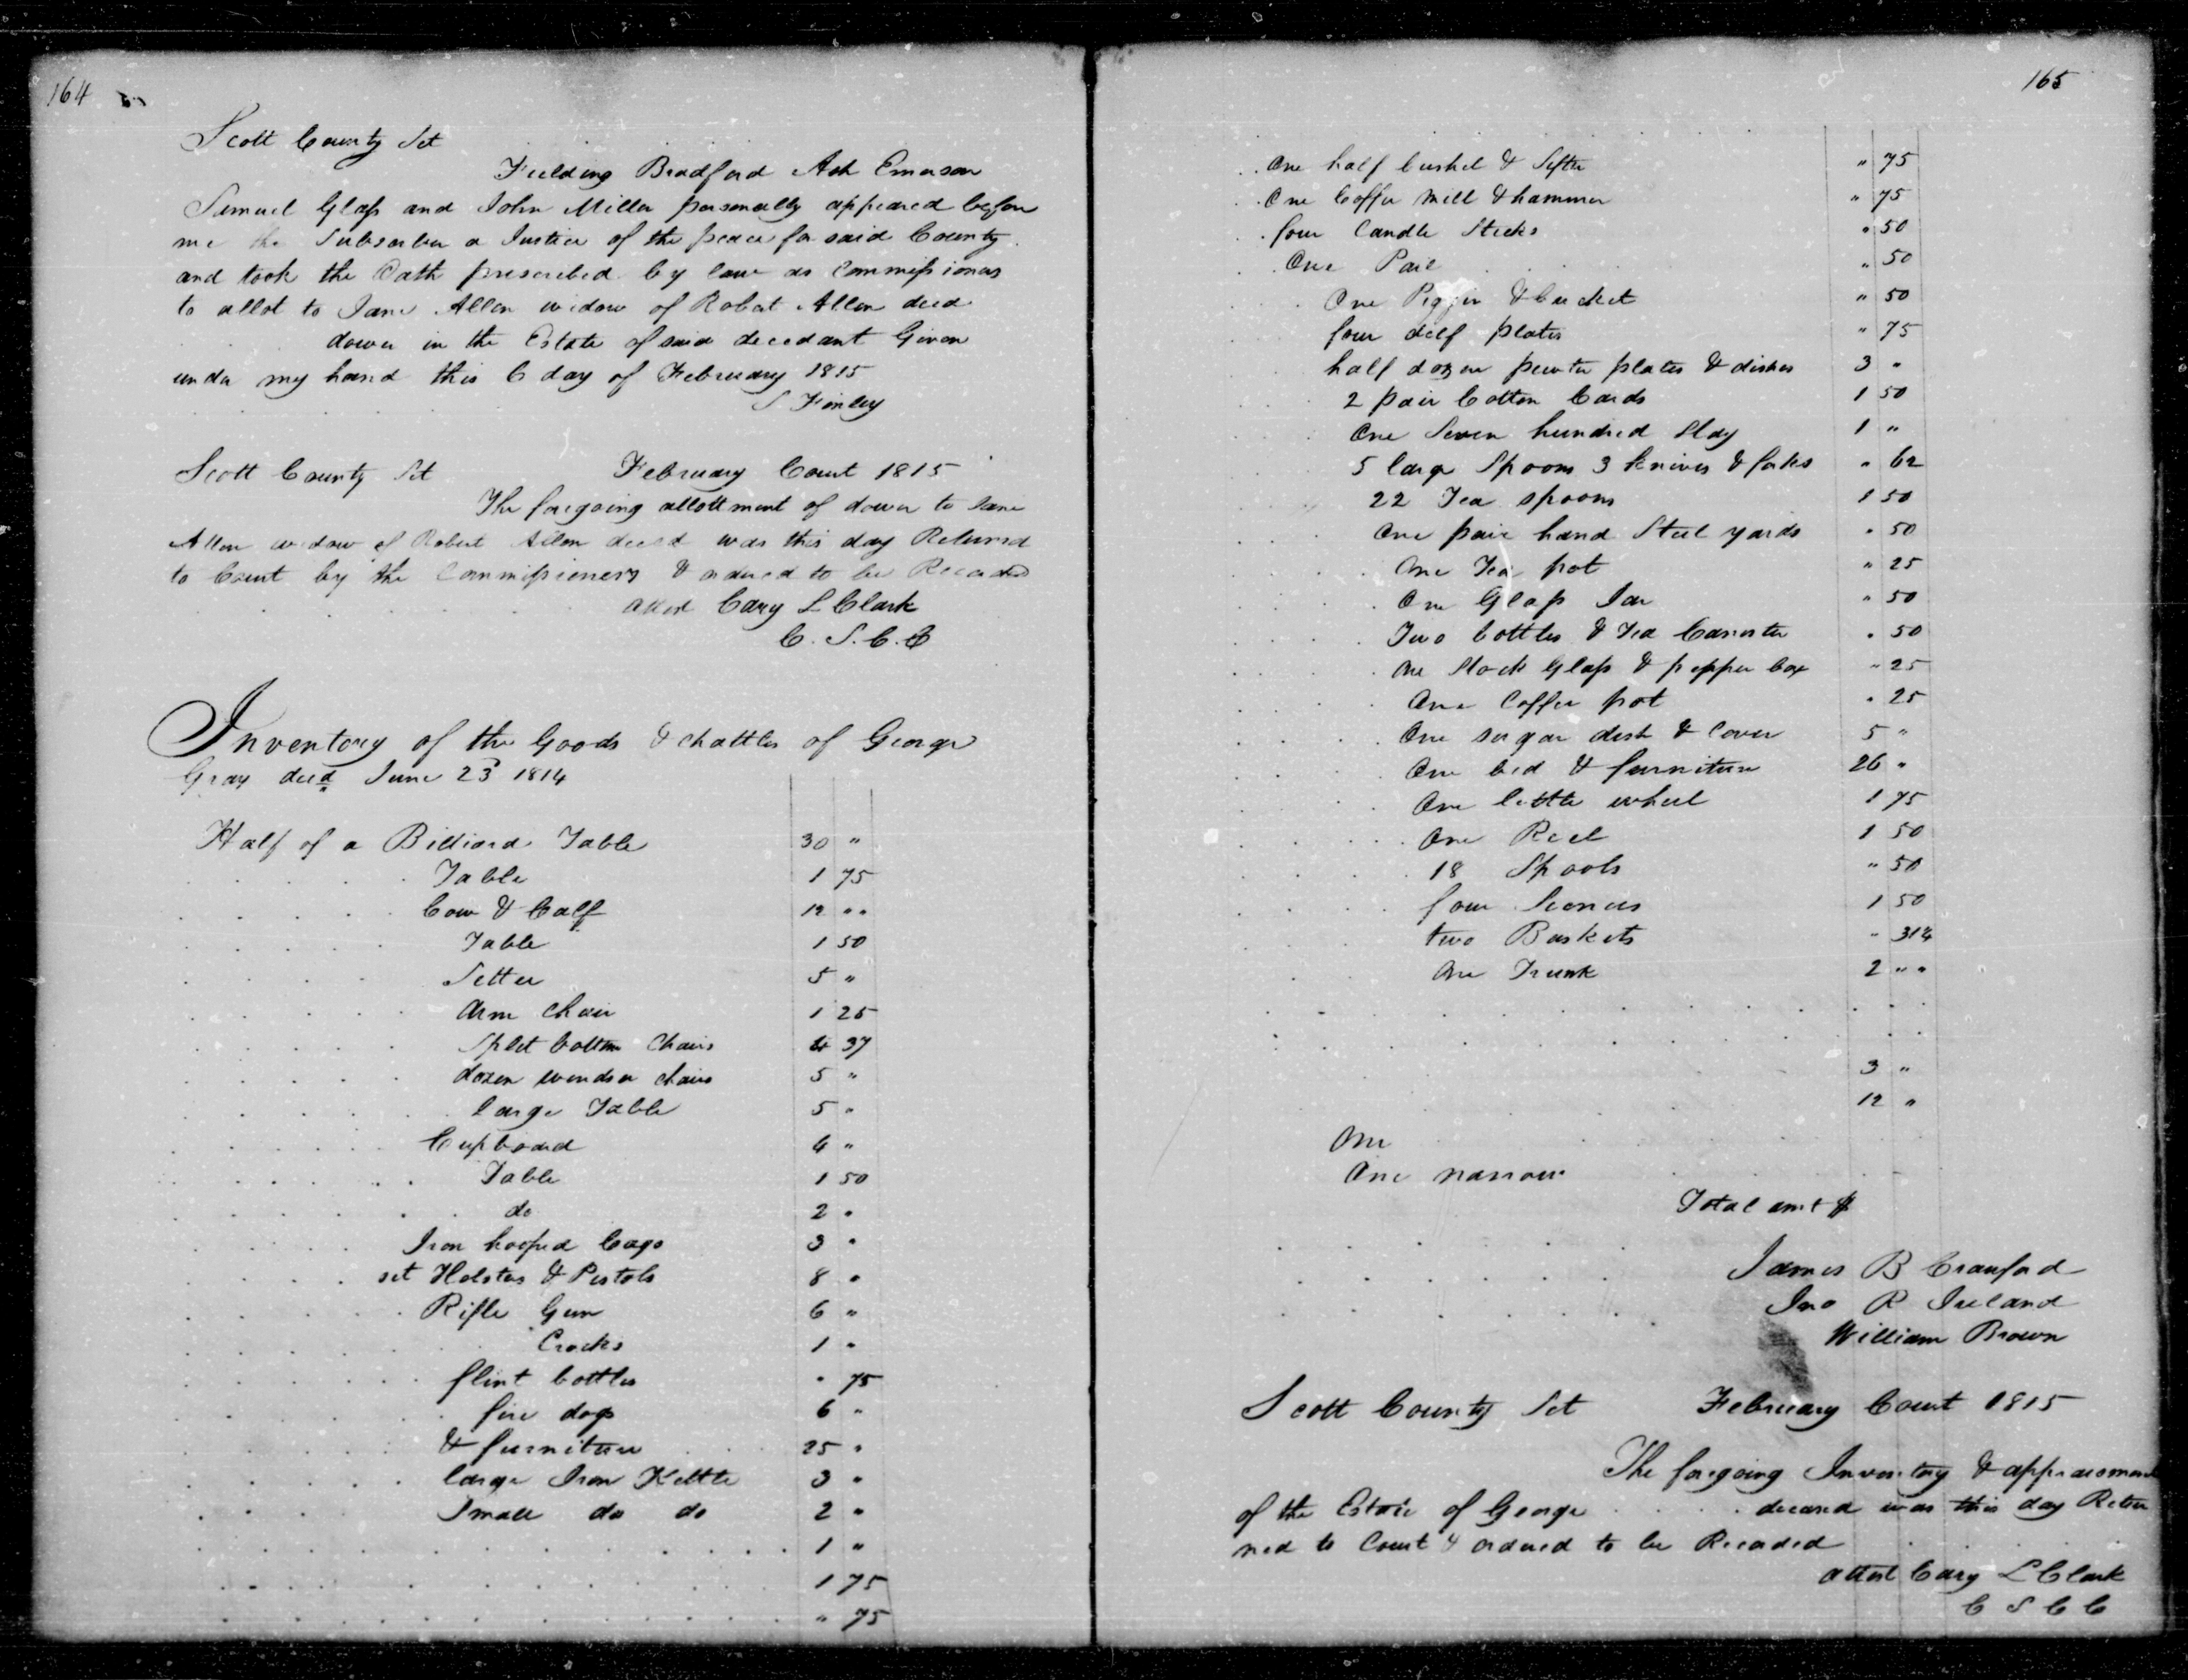 164
Scott County Sct
Fielding Bradford Ash Emerson
Samuel Glass and John Miller personally appeared before
me the Subscriber a Justice of the peace for said County
and took the Oath prescribed by law as Commissioners
to allot to Jane Allen widow of Robert Allen decd
dower in the Estate of said decedant Given
under my hand this 6 day of February 1815
S Finley
Scott County Sct February Court 1815
The foregoing allottment of dower to Jane
Allen widow of Robert Allen decd was this day Returned
to Court by the Commissioners & ordered to be Recorded
attest Cary L Clark
C. S. C. C
Inventory of the Goods & chattles of George
Gray decd June 23 1814
Half of a Billiard Table 30 "
Table 1 75
Cow & Calf 12 " "
Table 1 50
Settee 5 "
Arm Chair 1 25
Split bottom Chairs 4 37
dozen windsor chairs 5 "
large Table 5 "
Cupboard 4 "
Table 1 50
do 2 "
Iron hooped Cags 3 "
set Holsters & Pistols 8 "
Rifle Gun 6 "
Crocks 1 "
flint bottles " 75
fire dogs 6 "
& furniture 25 "
large Iron Kettle 3 "
Small do do 2 "
1 "
1 75
" 75
165
One half bushel & Sifter " 75
One Coffee Mill & hammer " 75
four Candle Sticks " 50
One Pail " 50
One Piggin & bucket " 50
four delf plates " 75
half dozen pewter plates & dishes 3 "
2 pair Cotton Cards 1 50
One Seven hundred Slay 1 "
5 large Spoons 3 knives & forks " 62
22 Tea spoons 1 50
One pair hand Steel yards " 50
One Tea pot " 25
One Glass Jar " 50
Two bottles & Tea Canister " 50
One Stock Glass & pepper box " 25
One Coffee pot " 25
One sugar dish & Cover 5 "
One bed & furniture 26 "
One little wheel 1 75
One Reel 1 50
18 Spools " 50
four 1 50
two Baskets " 31¼
One Trunk 2 " "
3 "
12 "
One
One narrow
Total amt $
James B Crauford
Jno R Ireland
William Brown
Scott County Sct February Court 1815
The foregoing Inventory & appraisment
of the Estate of George deceased was this day Retur
ned to Court & ordered to be Recorded
attest Cary L Clark
C S C C